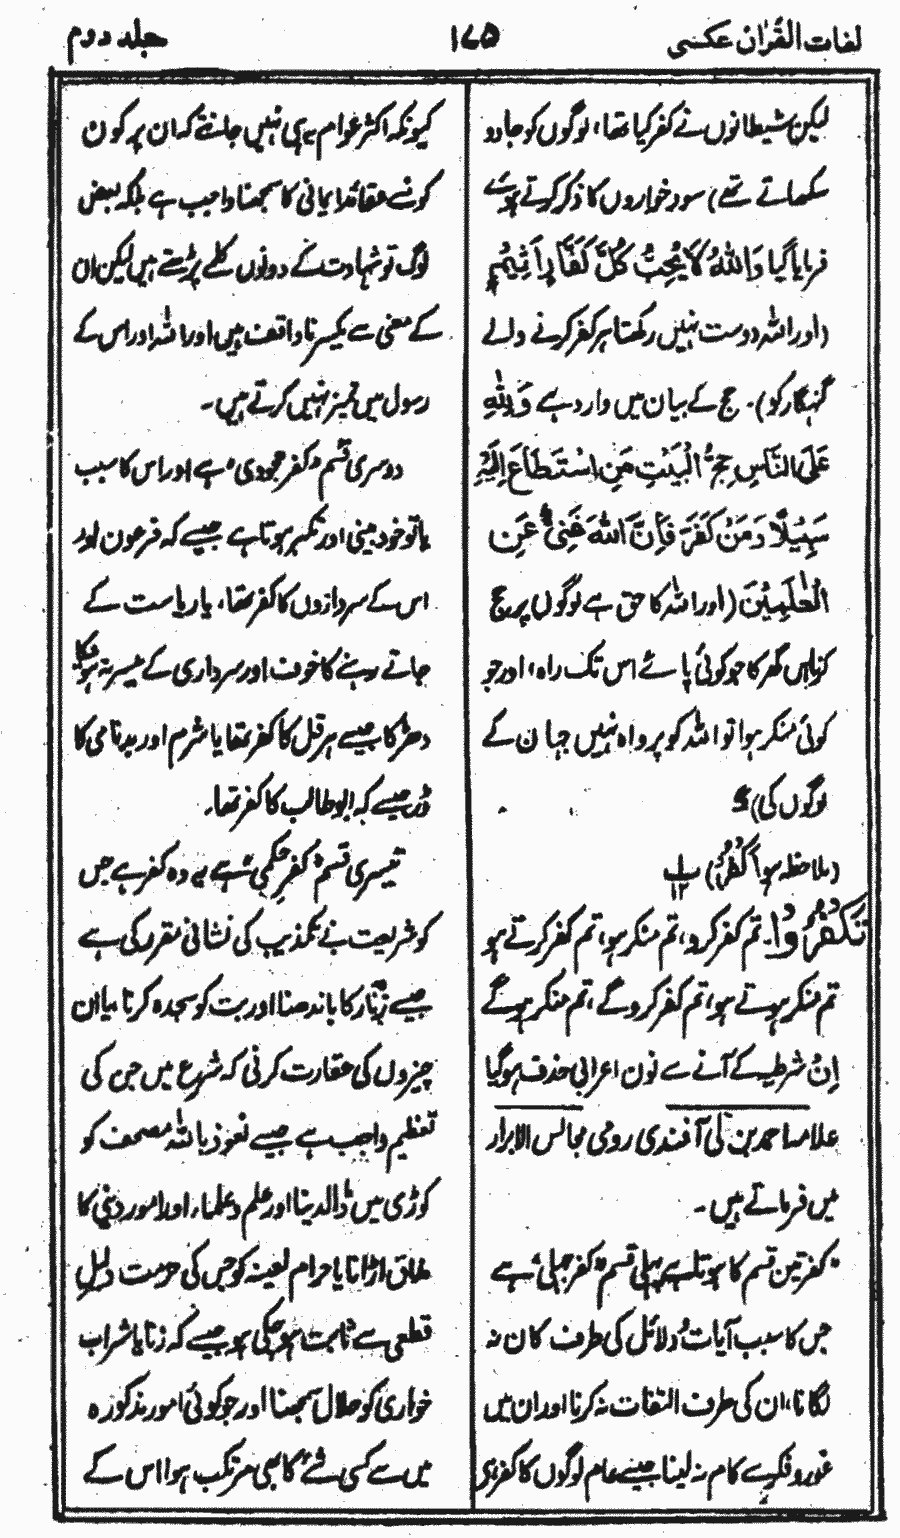 لغات القرآن عکسی
۱۷۵
جلد دوم
لیکن شیطانوں نے کفر کیا تھا، لوگوں کو جادو
سکھاتے تھے) سود خواروں کا ذکر کرتے ہوئے
فرمایا گیا وَاللّٰهُ لَا يُحِبُّ كُلَّ كَفَّارٍ اَثِيْمٍ
(اور اللہ دوست نہیں رکھتا ہر کفر کرنے والے
گنہگار کو)۔ حج کے بیان میں وارد ہے وَلِلّٰهِ
عَلَى النَّاسِ حِجُّ الْبَيْتِ مَنِ اسْتَطَاعَ اِلَيْهِ
سَبِيْلًا وَمَنْ كَفَرَ فَاِنَّ اللّٰهَ غَنِيٌّ عَنِ
الْعٰلَمِيْنَ (اور اللہ کا حق ہے لوگوں پر حج
کرنا اس گھر کا جو کوئی پائے اس تک راہ، اور جو
کوئی منکر ہوا تو اللہ کو پرواہ نہیں جہان کے
لوگوں کی)
(ملاحظہ ہو اُكْفُرْ)
تَكْفُرُوْا۔ تم کفر کرو، تم منکر ہو، تم کفر کرتے ہو
تم منکر ہوتے ہو، تم کفر کرو گے، تم منکر ہوگے
اِنْ شرطیہ کے آنے سے نون اعرابی حذف ہوگیا
علامہ احمد بن لی آفندی رومی مجالس الابرار
میں فرماتے ہیں۔
"کفر تین قسم کا ہوتا ہے پہلی قسم "کفر جہلی" ہے
جس کا سبب آیات و دلائل کی طرف کان نہ
لگانا، ان کی طرف التفات نہ کرنا اور ان میں
غور و فکر سے کام نہ لینا جیسے عام لوگوں کا کفر ہے
کیونکہ اکثر عوام یہی نہیں جانتے کہ ان پر کون
کونسے عقائد ایمانی کا سمجھنا واجب ہے بلکہ بعض
لوگ تو شہادت کے دونوں کلمے پڑھتے ہیں لیکن ان
کے معنی سے یکسر ناواقف ہیں اور اللہ اور اس کے
رسول میں تمیز نہیں کرتے ہیں۔
دوسری قسم "کفر جحودی" ہے اور اس کا سبب
یا تو خود بینی اور تکبر ہوتا ہے جیسے کہ فرعون اور
اس کے سرداروں کا کفر تھا، یا ریاست کے
جاتے رہنے کا خوف اور سرداری کے میسر نہ ہونے کا
دھڑکا جیسے ہرقل کا کفر تھا یا شرم اور بدنامی کا
ڈر جیسے کہ ابوطالب کا کفر تھا۔
تیسری قسم "کفر حکمی" ہے یہ وہ کفر ہے جس
کو شریعت نے تکذیب کی نشانی مقرر کی ہے
جیسے زنار کا باندھنا اور بت کو سجدہ کرنا، یا ان
چیزوں کی حقارت کرنی کہ شرع میں جن کی
تعظیم واجب ہے جیسے نعوذ باللہ مصحف کو
کوڑی میں ڈال دینا اور علم و علماء اور امور دینی کا
مذاق اڑانا یا حرام لعینہ کو جس کی حرمت دلیل
قطعی سے ثابت ہوچکی ہو جیسے کہ زنا یا شراب
خواری کو حلال سمجھنا اور جو کوئی امور مذکورہ
میں سے کسی شے کا بھی مرتکب ہوا اس کے